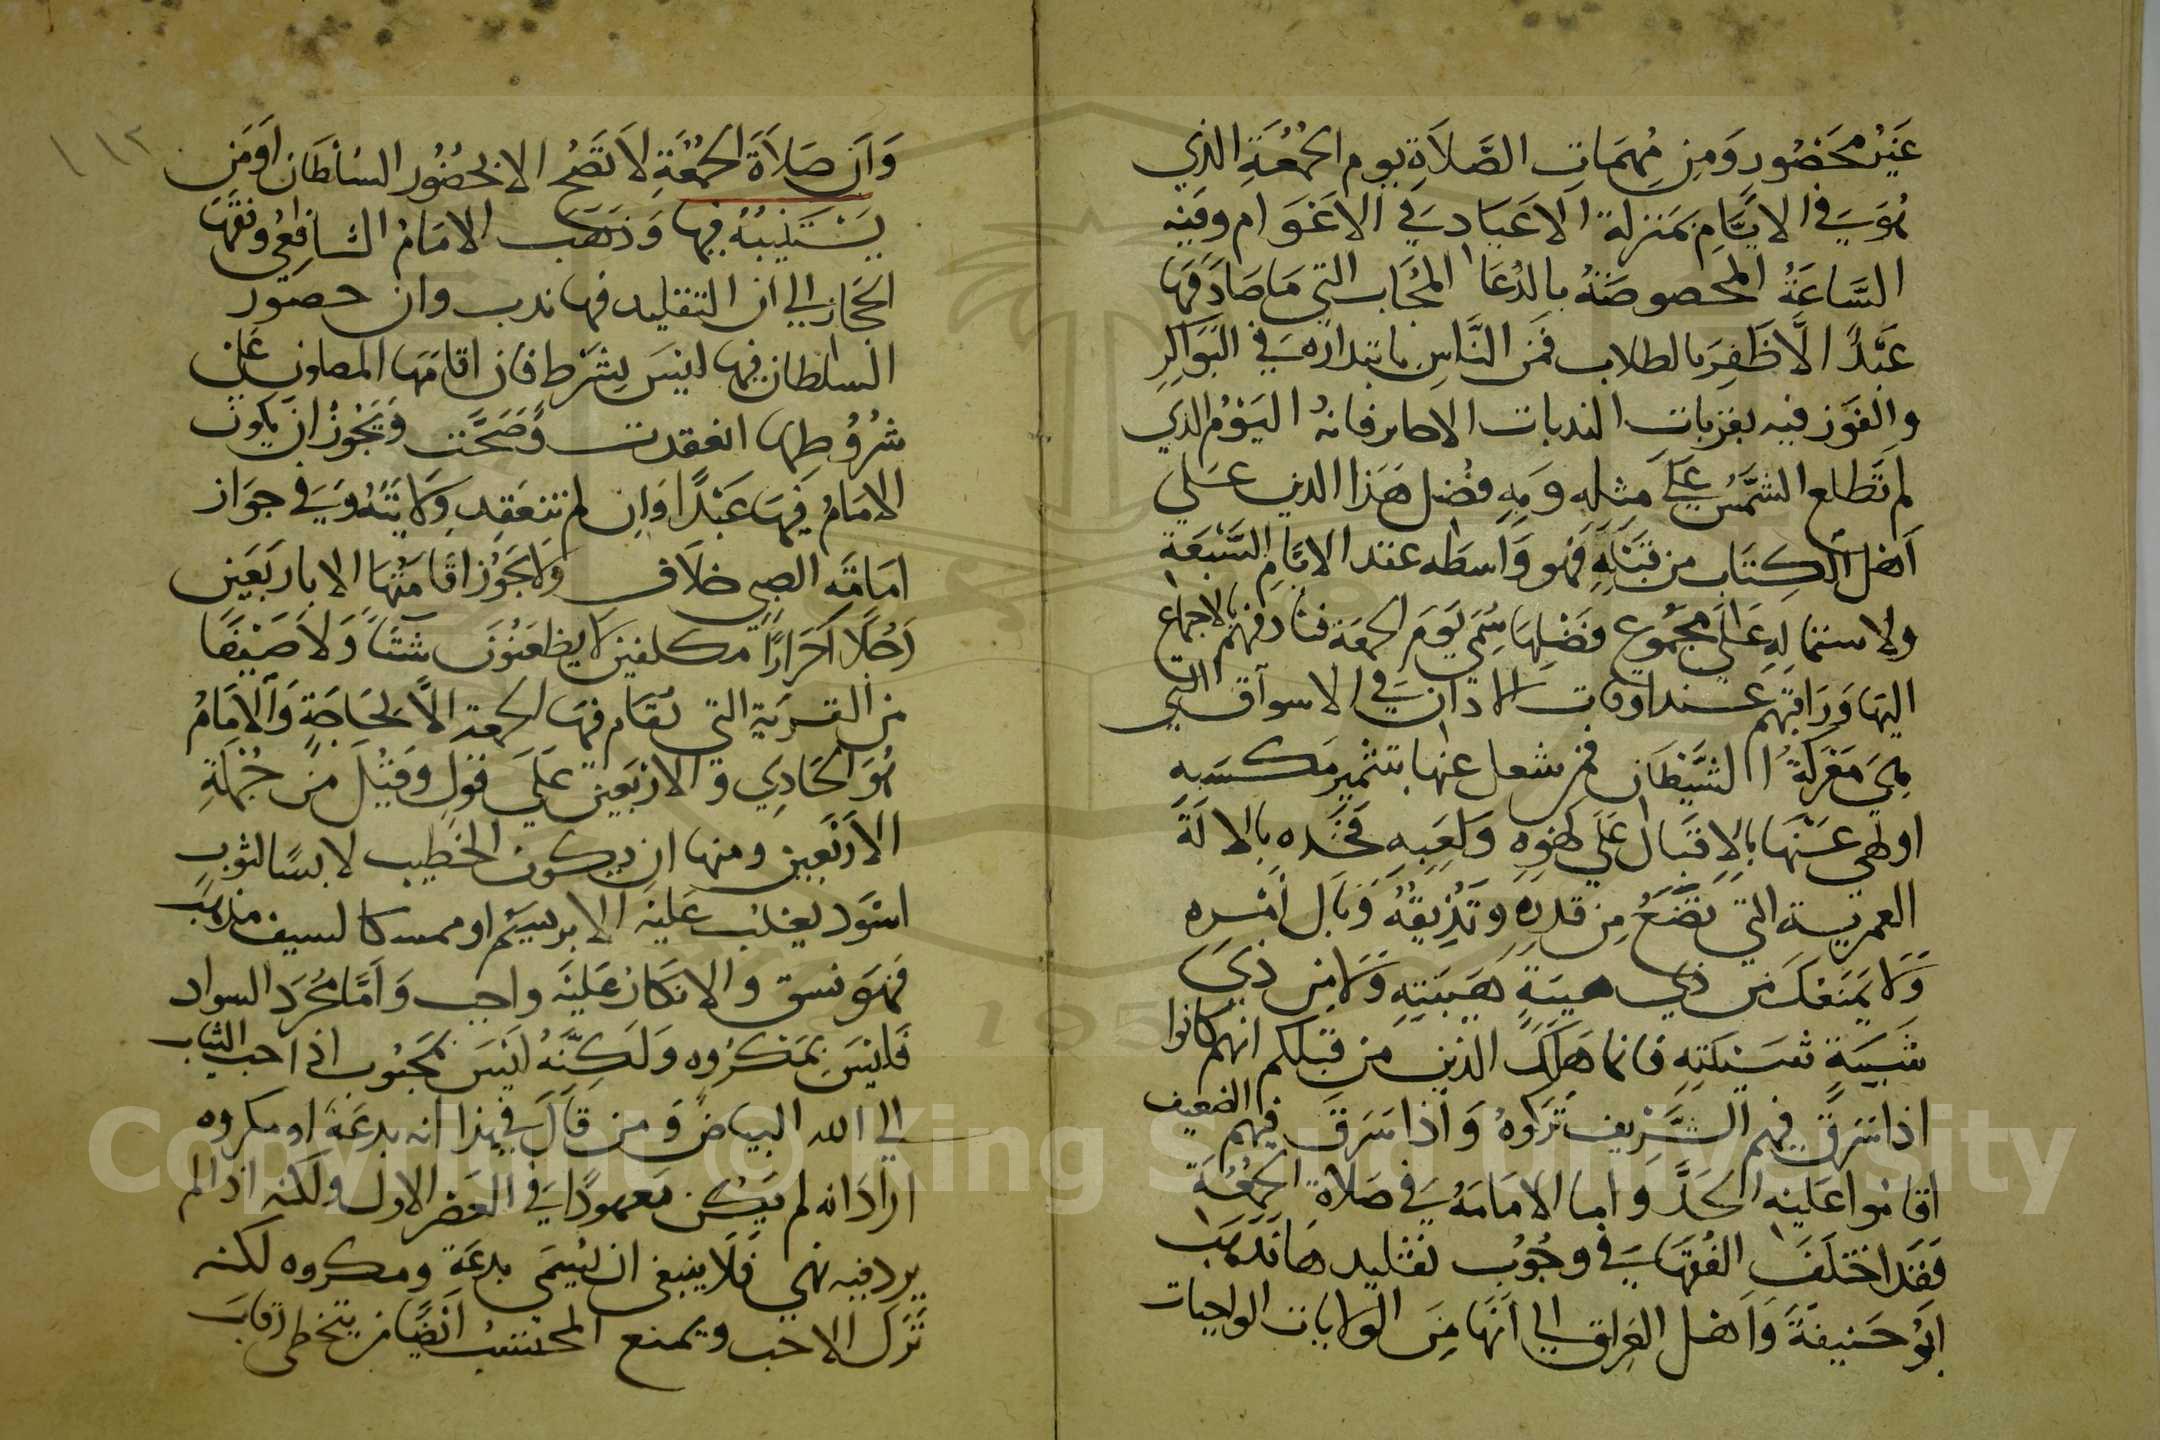 غَيْرُ محَصُورٍ وَمِن مُهمَاتِ الصَّلاَةِ يوم الجُمُعَةِ الذي
هُوَ في الايَّام بمَنزلة الاعيَاد في الاعْوَام وفيه
السَّاعَةُ المخصوصَةُ بالدُعَا المُجَاب التي مَا صَادَفَها
عَبْدٌ الَّا ظَفِرَ بالطلاب فمُر النَّاسِ بابتداره في البَوَاكِر
والفَوز فيه بقربات البدنات الا فانهُ اليَوْمُ الذي
لم تَطلع الشَّمْسُ عَلَى مثله وَبِهِ فُضِل هَذا الدين عَلى
اَهْل الكِتَاب من قَبْلِهِ فَهو وَاسطه عقد الايَّامِ السَّبْعَةِ
ولاشتمالِهِ عَلَى مَجْمُوع فَضْلِهَا سُمّي يَومَ الجمعة فنادِ فيهم بالاجماع
اليهَا وَرَاقِبْهم عند اوقات الاذان في الاسوَاق التي
هِيَ مَعْرَكَةُ الشَّيْطَان فمن شغل عنها بتثمير مَكسَبِهِ
او لهي عَنْهَا بالاِقبَال عَلَى لَهْوِه وَلَعِبِهِ فَخُذه بالالَةَ
العمرية التي تَضَعُ مِن قدرِه وَتُذِيقُهُ وَبَالَ اَمْره
وَلَا يَمنَعْكَ مِن ذي هيبَةٍ هَيْبَتِهِ وَلَا مِن ذي
شَيبَةٍ شَيْبَتِهِ فانما هَلَكَ الذين من قَبلكم انهم كانوا
اذا سَرَقَ فيهم الشَّرِيف تَرَكوهُ وَاذا سَرَقَ فيهم الضعيف
اقامُوا عَليه الحَدَّ وَاما الامَامَةُ في صَلاة الجُمُعَة
فَقَد اختَلَفَ الفُقهَا في وُجُوبِ تَقليدهَا فَذَهَبَ
اَبُو حَنيفَةَ وَاَهْل العِرَاق الي اَنَّهَا مِنَ الولايات الواجبات
١١٢
وَاَن صَلاَةَ الجُمُعَةِ لاَ تَصُحّ الا بِحُضُور السُلطَان اَو مَن
يَسْتَنِيبُهُ فيها وَذَهَبَ الامَامُ الشافِعُي وفقهَا
الحجَاز الي اَن التقليد فيها ندب وان حضور
السلطان فيها ليسَ بِشَرط فان اقامَهَا المصلون عَلى
شُرُوطِهَا انعقدت وَصَحَّت وَيَجُوزُ ان يكون
الامَامُ فيهَا عَبْدًا وَاِن لم تنعَقِد وِلَايَتَهُ وَفي جوَاز
امَامَة الصبي خلَاف وَلا يَجُوزُ اقَامَتُهَا الا باَربَعَين
رَجُلًا اَحْرَارًا مكلفين لَا يظعَنُونَ شتَاً وَلَا صَيْفًا
من القريَة التي تُقام فيهَا الجمعة الاَّ لحَاجَةٍ وَالامَامُ
هُوَ الحَادِي والارْبَعين عَلَى قَولٍ وَقيلَ مِن جُمْلَةِ
الاَرْبَعين ومنها ان يكون الخَطِيب لابسًا لثوبٍ
اسْوَد يغلب عَليْهِ الابريسَم او ممسكا لسيف مذهَب
فهَو فسق والانكَار عَليْه وَاجب وَامَّا مُجَرد السواد
فَليْسَ بمَكْرُوه وَلَكِنَّهُ ليسَ بمَحبُوب اذ احب الثياب
الي الله البياض وَمن قَالَ في هذا انه بدعَةَ او مكروه
ارَادَ انه لم يَكُن مَعهودًا في العَصْر الاول ولكنه اذا لم
يرد فيه نهي فَلَا ينبغي ان يُسَمي بدعَة ومكروه لكنه
تَرَكَ الاحب ويمنع المحتسبُ اَيْضًا من يتخطى رقَابَ